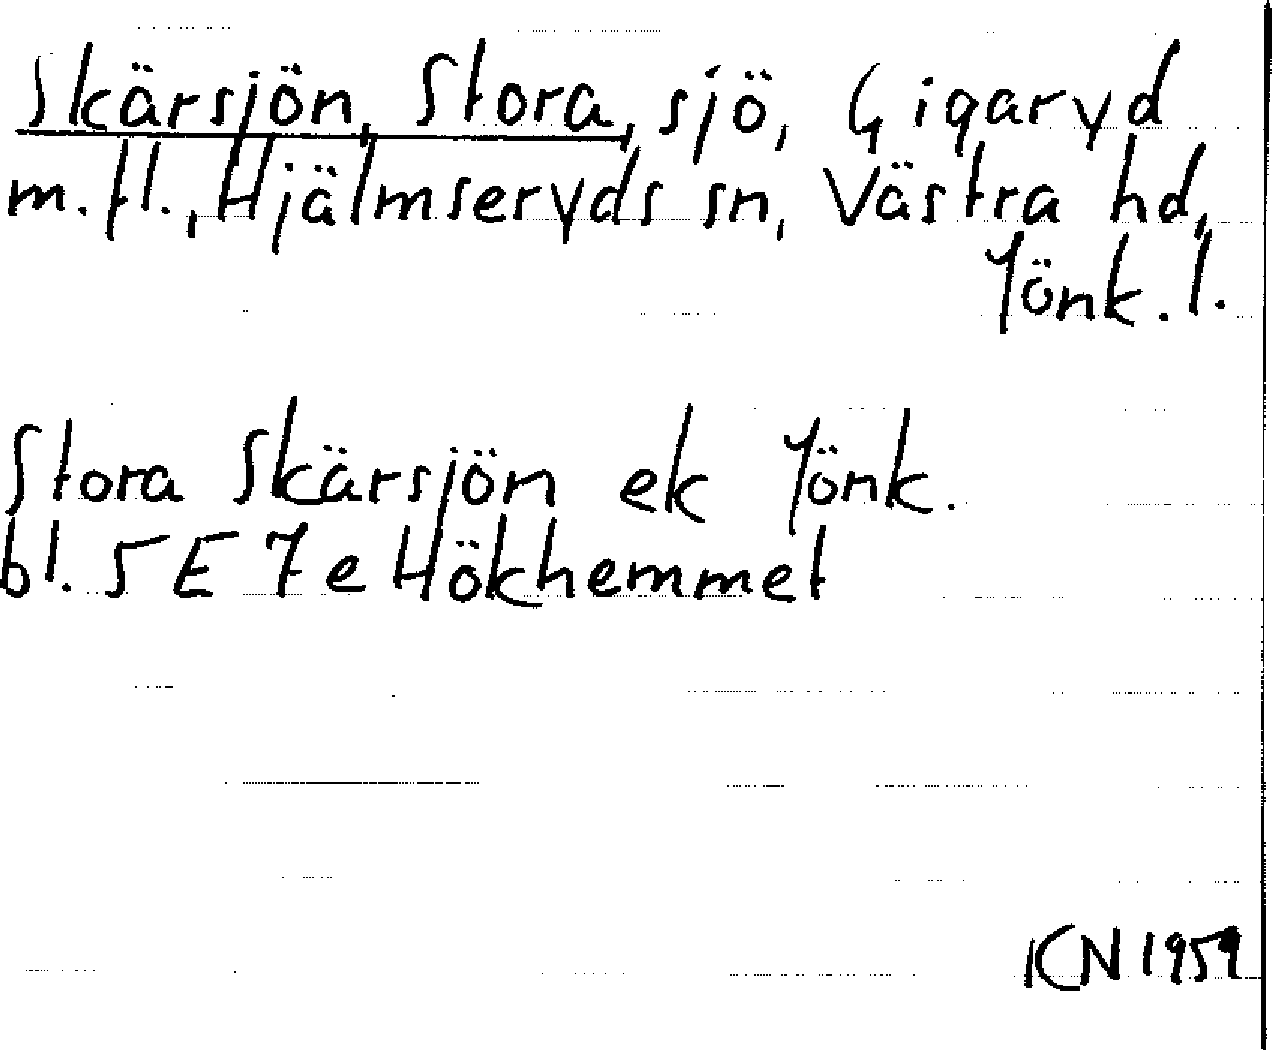 Skärsjön, Stora, sjö, Gigaryd
m.fl., Hjälmseryds sn, Västra hd,
Jönk. l.
Stora Skärsjön ek Jönk.
bl. 5 E 7 e Hökhemmet
KN 1959